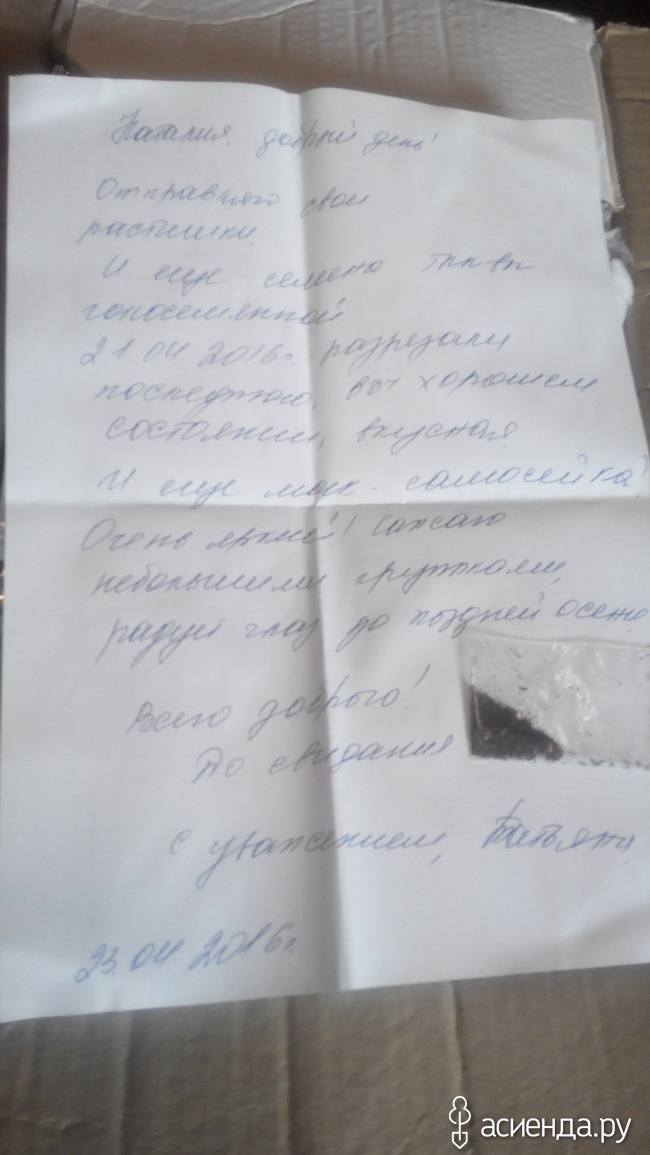 Наталия, добрый день!
Отправляю свои
растишки.
И еще семена тыквы
голосемянной
21.04.2016г. разрезали
последнюю, в хорошем
состоянии, вкусная
И еще мак - самосейка!
Очень яркий! Сажаю
небольшими группами,
радует глаз до поздней осени
Всего доброго!
До свидания
С уважением, Татьяна
23.04.2016г.
асиенда.ру